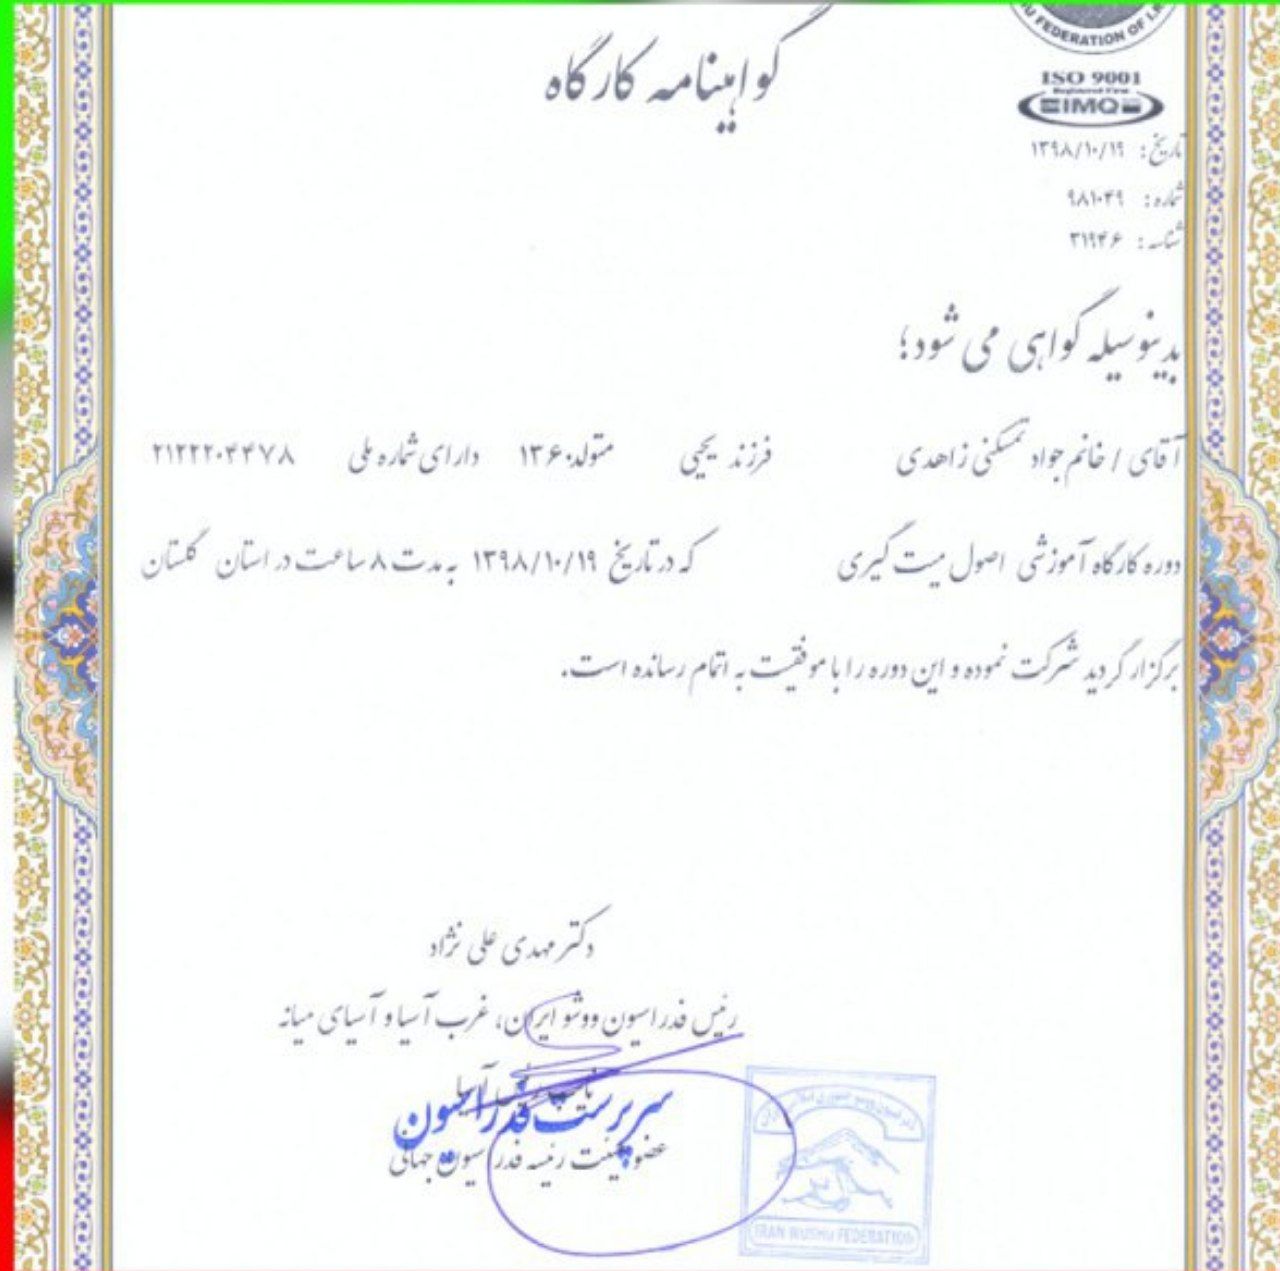 U FEDERATION OF I.R
ISO 9001
Registered Firm
IMQ
گواهینامه کارگاه
تاریخ: ۱۳۹۸/۱۰/۱۹
شماره: ۹۸۱۰۴۹
شناسه: ۳۱۹۴۶
بدینوسیله گواهی می شود؛
آقای / خانم جواد تمسکنی زاهدی فرزند یحیی متولد ۱۳۶۰ دارای شماره ملی ۲۱۲۲۲۰۴۴۷۸
دوره کارگاه آموزشی اصول میت گیری که در تاریخ ۱۳۹۸/۱۰/۱۹ به مدت ۸ ساعت در استان گلستان
برگزار گردید شرکت نموده و این دوره را با موفقیت به اتمام رسانده است.
دکتر مهدی علی نژاد
رئیس فدراسیون ووشو ایران، غرب آسیا و آسیای میانه
سرپرست فدراسیون
عضو هیئت رئیسه فدراسیون جهانی
IRAN WUSHU FEDERATION